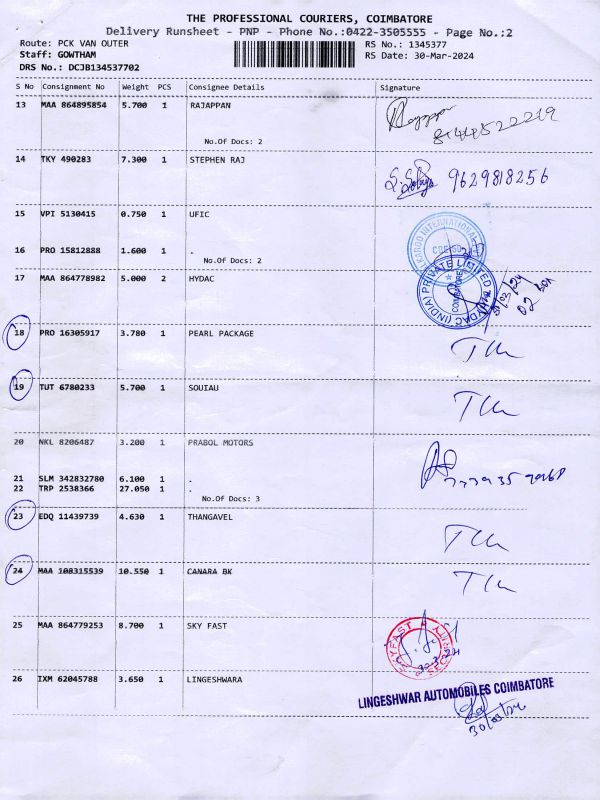 THE PROFESSIONAL COURIERS, COIMBATORE
Delivery Runsheet - PNP - Phone No.:0422-3505555 - Page No.:2
Route: PCK VAN OUTER
Staff: GOWTHAM
DRS No.: DCJB134537702
RS No.: 1345377
RS Date: 30-Mar-2024
S No Consignment No Weight PCS Consignee Details Signature
13 MAA 864895854 5.700 1 RAJAPPAN
No.Of Docs: 2
14 TKY 490283 7.300 1 STEPHEN RAJ
9629818256
15 VPI 5130415 0.750 1 UFIC
16 PRO 15812888 1.600 1 .
No.Of Docs: 2
17 MAA 864778982 5.000 2 HYDAC
HYDAC (INDIA) PRIVATE LIMITED
COIMBATORE
18 PRO 16305917 3.780 1 PEARL PACKAGE
19 TUT 6780233 5.700 1 SOUIAU
20 NKL 8206487 3.200 1 PRABOL MOTORS
21 SLM 342832780 6.100 1 .
22 TRP 2538366 27.050 1 .
No.Of Docs: 3
23 EDQ 11439739 4.630 1 THANGAVEL
24 MAA 108315539 10.550 1 CANARA BK
25 MAA 864779253 8.700 1 SKY FAST
26 IXM 62045788 3.650 1 LINGESHWARA
LINGESHWAR AUTOMOBILES COIMBATORE
30/03/24